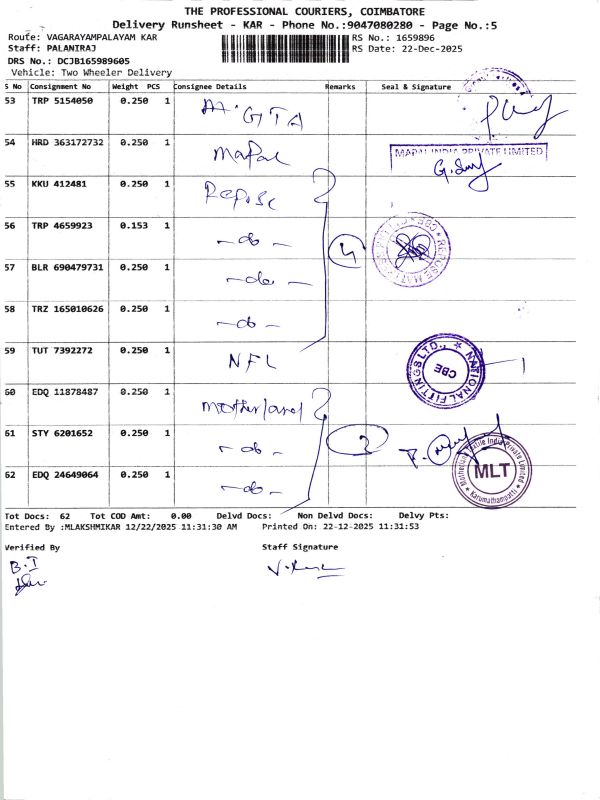 THE PROFESSIONAL COURIERS, COIMBATORE
Delivery Runsheet - KAR - Phone No.:9047080280 - Page No.:5
Route: VAGARAYAMPALAYAM KAR
RS No.: 1659896
Staff: PALANIRAJ
RS Date: 22-Dec-2025
DRS No.: DCJB165989605
Vehicle: Two Wheeler Delivery
S No Consignment No Weight PCS Consignee Details Remarks Seal & Signature
53 TRP 5154050 0.250 1
54 HRD 363172732 0.250 1 Mapal
MAPAL INDIA PRIVATE LIMITED
55 KKU 412481 0.250 1 Repose
56 TRP 4659923 0.153 1 -do- 4
57 BLR 690479731 0.250 1 -do-
58 TRZ 165010626 0.250 1 -do-
59 TUT 7392272 0.250 1 NFL
NATIONAL FITTINGS LTD., CBE
60 EDQ 11878487 0.250 1 Motherland
61 STY 6201652 0.250 1 -do- 3
62 EDQ 24649064 0.250 1 -do-
MLT
Karumathampatti
Tot Docs: 62 Tot COD Amt: 0.00 Delvd Docs: Non Delvd Docs: Delvy Pts:
Entered By :MLAKSHMIKAR 12/22/2025 11:31:30 AM Printed On: 22-12-2025 11:31:53
Verified By Staff Signature
B.I